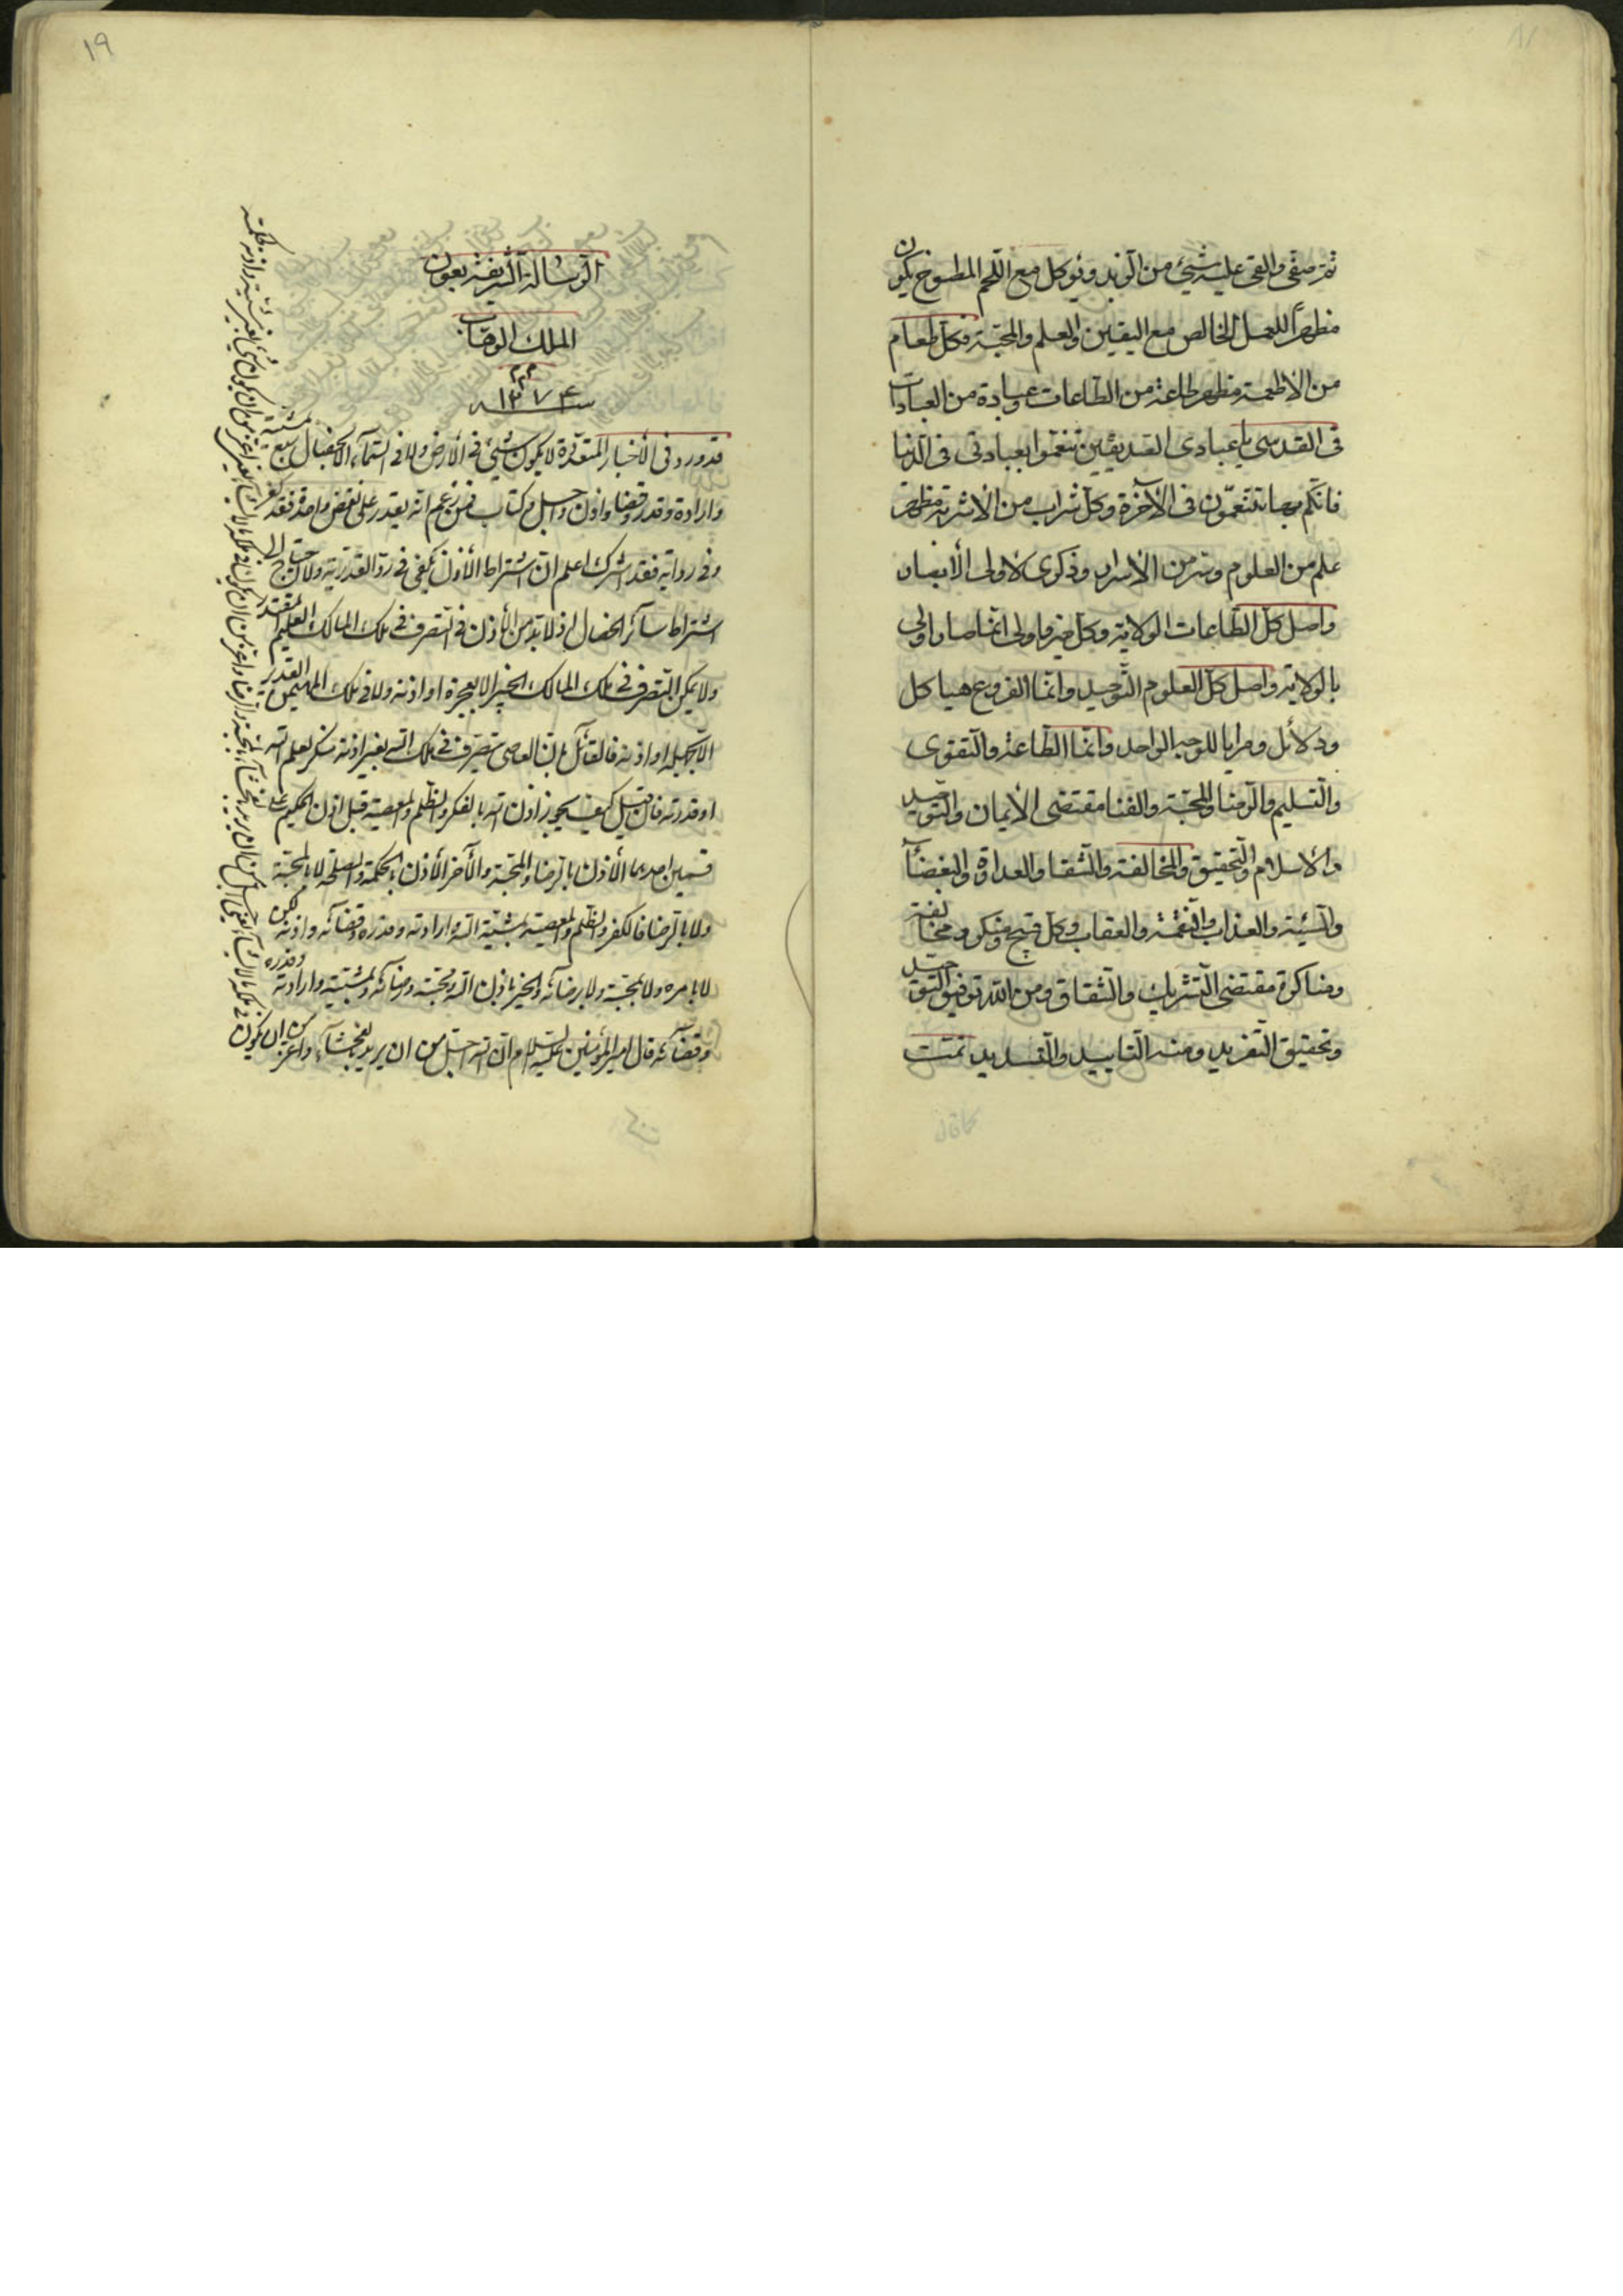 ثم صفی والقی علیه شیئ من الزبد ویؤکل مع اللحم المطبوخ یکون
مظهراً للعمل الخالص مع الیقین والعلم والمحبة وکل طعام
من الاطعمة مظهر طاعة من الطاعات وعبادة من العبادات
فی القدسی یا عبادی الصدیقین تنعموا بعبادتی فی الدنیا
فانکم بها تتنعمون فی الآخرة وکل شراب من الاشربة مظهر
علم من العلوم وسر من الاسرار وذکری لاولی الأبصار
واصل کل الطاعات الولایة وکل خیر
بالولایة واصل کل العلوم التوحید وانما الفروع هیاکل
ودلائل ومرایا للوجه الواحد وانما الطاعة والتقوی
والتسلیم والرضا والمحبة والفنا مقتضی الأیمان والتوحید
والاسلام والتحقیق والمخالفة والشقا والعداوة والبغضاء
والسیئة والعذاب والنقمة والعقاب وکل قبیح ومنکر ومخالفة
ومناکرة مقتضی التشریك والشقاق ومن الله توفیق التوحید
وتحقیق التفرید ومنه التایید والتسدید تمت
١٩
الرسالة الشریفة بعون
الملك الوهاب
سنه ١٢٧٤
قد ورد فی الأخبار المتعددة لا یکون شیئ فی الأرض ولا فی السمآء الا بخصال سبع بمشیة
وارادة وقدر وقضا واذن واجل وکتاب فمن زعم انه یقدر علی نقض واحدة فقد کفر
وفی روایة فقد اشرك اعلم ان اشتراط الأذن یکفی فی رد القدریة ولا یحتاج الی
اشتراط سآئر الخصال اذ لا بد من الأذن فی التصرف فی ملك المالك العلیم المقتدر
ولا یمکن التصرف فی ملك المالك الخبیر الا بعجزه او اذنه ولا فی ملك المهیمن القدیر
الا بجهله او اذنه فالقآئل بان العاصی یتصرف فی ملك الله بغیر اذنه منکر لعلم الله
او قدرته فان قیل کیف یجوز اذن الله بالکفر والظلم والمعصیة قیل اذن الحکیم علی
قسمین احدهما الأذن بالرضاء والمحبة والآخر الأذن بالحکمة والمصلحة لا بالمحبة
ولا بالرضا فالکفر والظلم والمعصیة بمشیة الله وارادته وقدره وقضآئه واذنه لکن
لا بامره ولا بمحبته ولا برضآئه والخیر باذن الله ومحبته ورضآئه وبمشیته وارادته وقدره
وقضآئه قال امیر المؤمنین علیه السلام ان الله اجل من ان یرید الفحشآء واعز من ان یکون